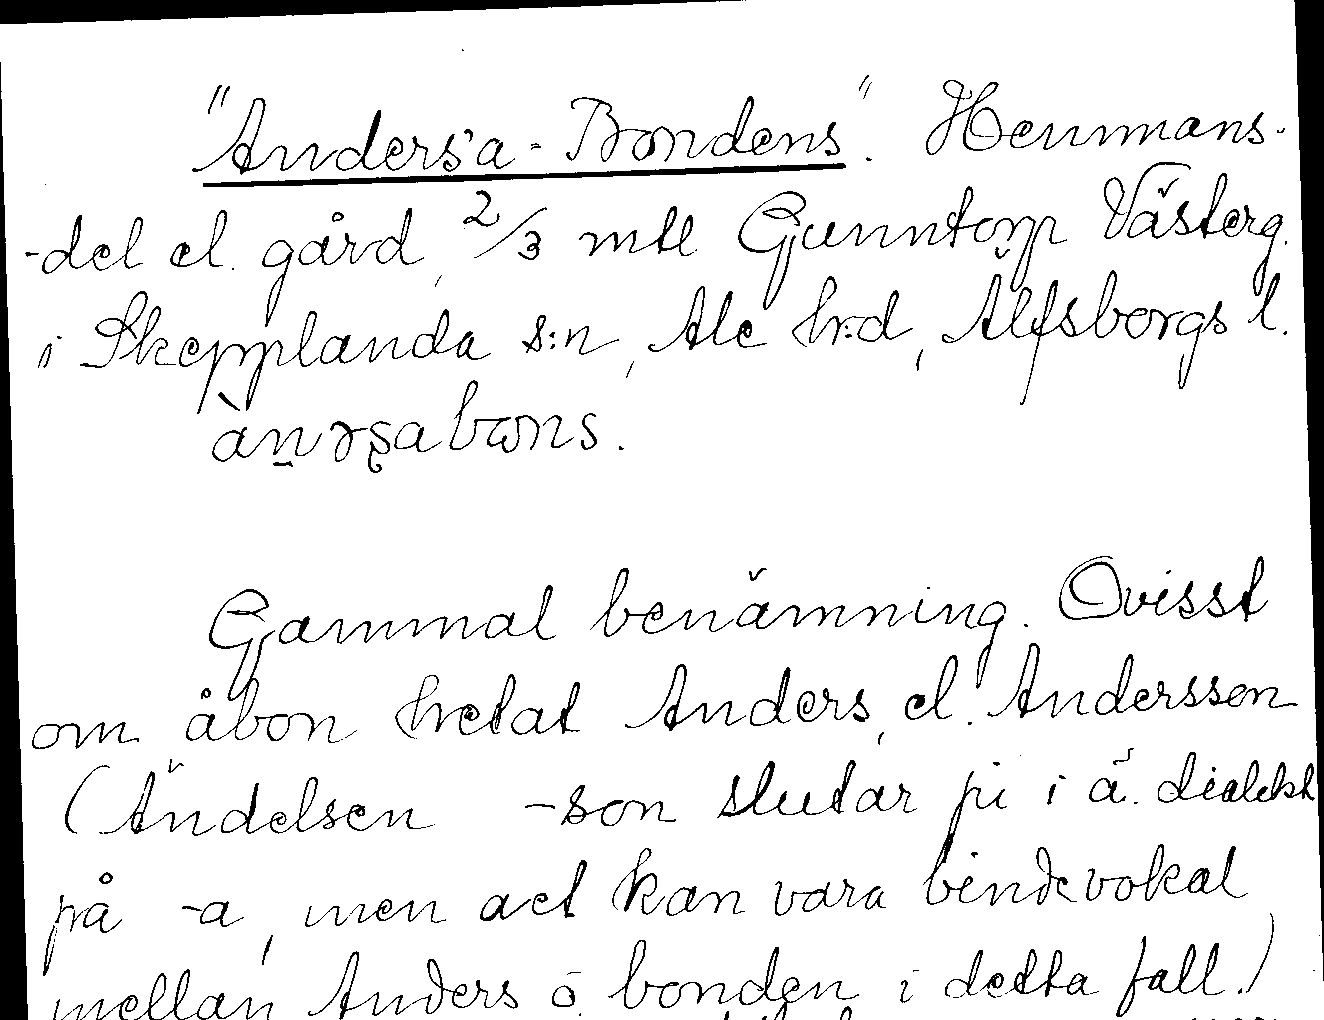 "Anders'a-Bondens". Hemmans-
-del el. gård, 2/3 mtl Gunntorp Västerg.
i Skepplanda s:n, Ale hr:d, Älfsborgs l.
Gammal benämning. Ovisst
om åbon hetat Anders, el. Andersson
(Ändelsen -son slutar i ä. dialekt
på -a, men det kan vara bindevokal
mellan Anders o bonden i detta fall.)